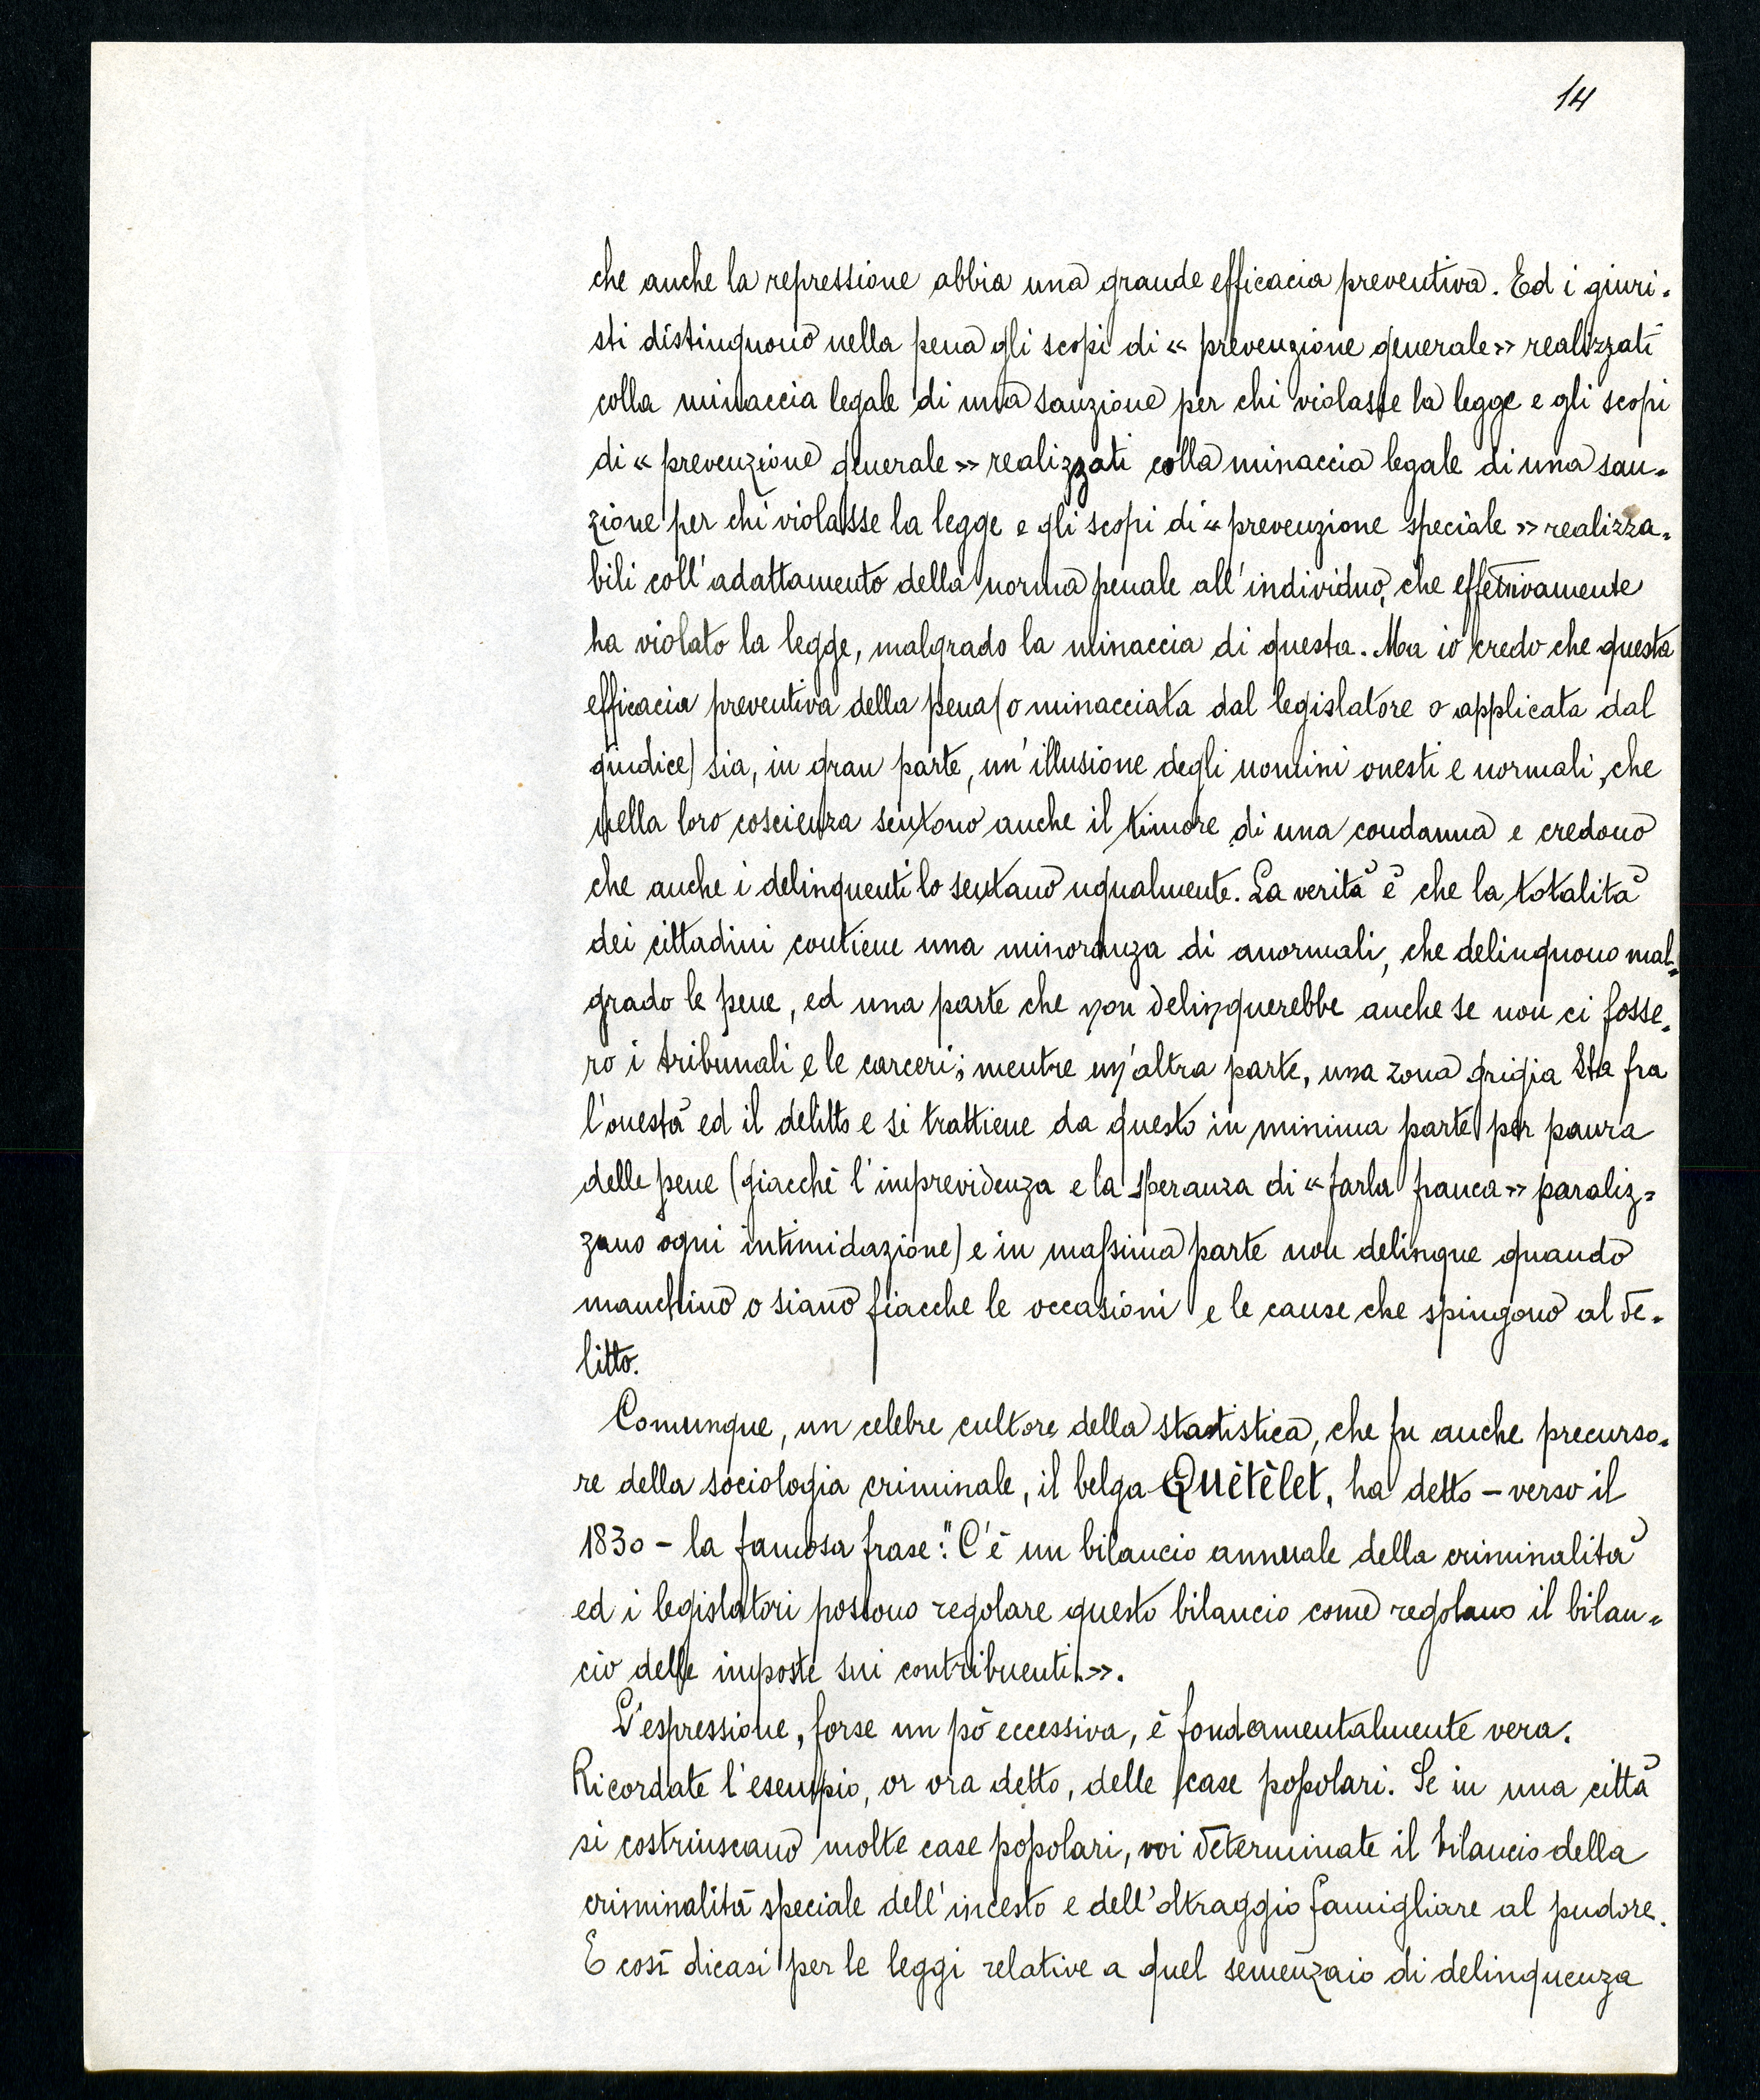 14
che anche la repressione abbia una grande efficacia preventiva. Ed i giuri-
sti distinguono nella pena gli scopi di « prevenzione generale » realizzati
colla minaccia legale di una sanzione per chi violasse la legge e gli scopi
di « prevenzione generale » realizzati colla minaccia legale di una san=
zione per chi violasse la legge e gli scopi di « prevenzione speciale » realizza=
bili coll'adattamento della norma penale all'individuo, che effettivamente
ha violato la legge, malgrado la minaccia di questa. Ma io credo che questa
efficacia preventiva della pena (o minacciata dal legislatore o applicata dal
giudice) sia, in gran parte, un'illusione degli uomini onesti e normali, che
nella loro coscienza sentono anche il timore di una condanna e credono
che anche i delinquenti lo sentano ugualmente. La verità è che la totalità
dei cittadini contiene una minoranza di anormali, che delinquono mal=
grado le pene, ed una parte che non delinquerebbe anche se non ci fosse=
ro i tribunali e le carceri; mentre un'altra parte, una zona grigia sta fra
l'onestà ed il delitto e si trattiene da questo in minima parte per paura
delle pene (giacchè l'imprevidenza e la speranza di « farla franca » paraliz=
zano ogni intimidazione) e in massima parte non delinque quando
manchino o siano fiacche le occasioni e le cause che spingono al de=
litto.
Comunque, un celebre cultore della statistica, che fu anche precurso=
re della sociologia criminale, il belga Quètèlet, ha detto - verso il
1830 - la famosa frase: "C'è un bilancio annuale della criminalità
ed i legislatori possono regolare questo bilancio come regolano il bilan=
cio delle imposte sui contribuenti.».
L'espressione, forse un pò eccessiva, è fondamentalmente vera.
Ricordate l'esempio, or ora detto, delle case popolari. Se in una città
si costriuscano molte case popolari, voi determinate il bilancio della
criminalità speciale dell'incesto e dell'oltraggio famigliare al pudore.
E così dicasi per le leggi relative a quel semenzaio di delinquenza